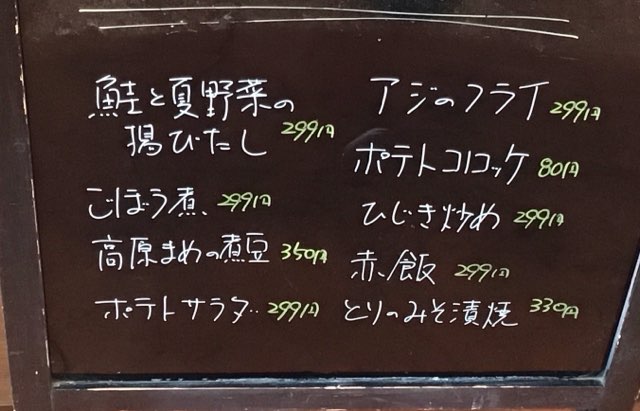 鮭と夏野菜の
揚びたし 299円
ごぼう煮、 299円
高原まめの煮豆 350円
ポテトサラダ 299円
アジのフライ 299円
ポテトコロッケ 80円
ひじき炒め 299円
赤飯 299円
とりのみそ漬焼 330円